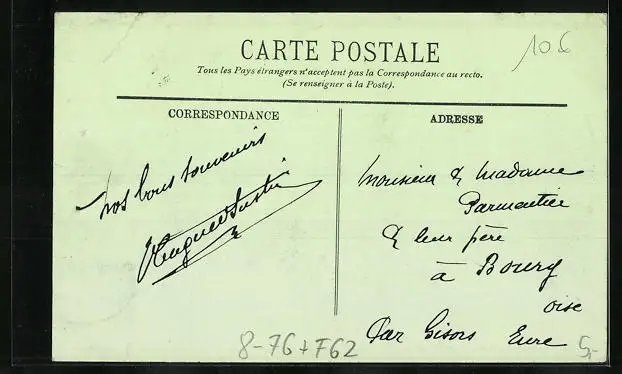 CARTE POSTALE
Tous les Pays étrangers n'acceptent pas la Correspondance au recto.
(Se renseigner à la Poste).
CORRESPONDANCE
ADRESSE
nos bons souvenirs
Monsieur & Madame
Parmentier
& leur père
à Bourg
oise
Par Gisors Eure
106
8-76+F62
5,-